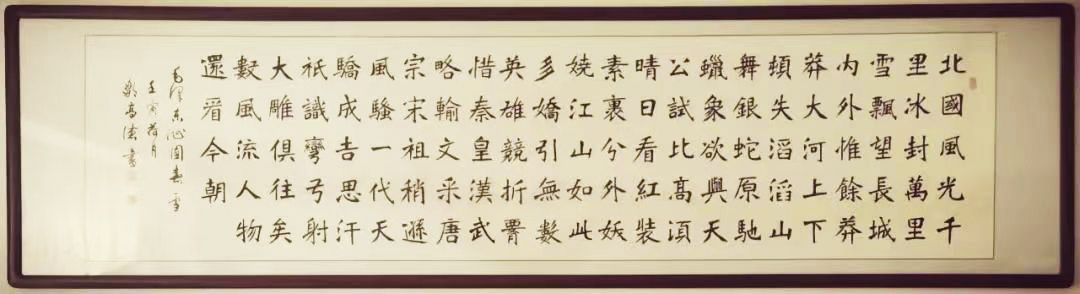 北國風光千
里冰封萬里
雪飄望長城
内外惟餘莽
莽大河上下
頓失滔滔山
舞銀蛇原馳
蠟象欲與天
公試比高須
晴日看紅裝
素裹分外妖
嬈江山如此
多嬌引無數
英雄競折腰
惜秦皇漢武
略輸文采唐
宗宋祖稍遜
風騷一代天
驕成吉思汗
祇識彎弓射
大雕俱往矣
數風流人物
還看今朝
毛澤東沁園春雪
壬寅荷月
高書